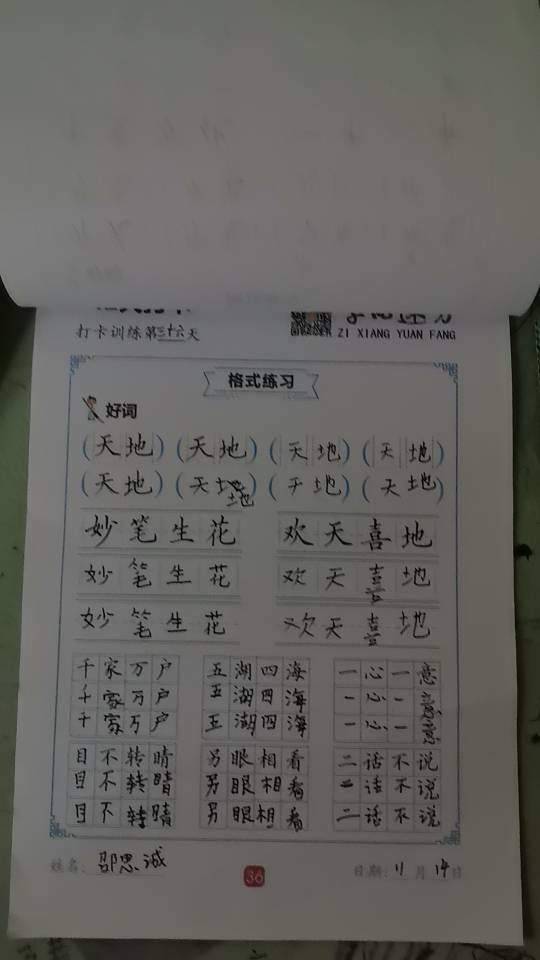 打卡训练第三十六天
ZI XIANG YUAN FANG
格式练习
好词
(天地) (天地) (天地) (天地)
(天地) (天地地) (天地) (天地)
妙笔生花 欢天喜地
妙笔生花 欢天喜地
妙笔生花 欢天喜地
千家万户 五湖四海 一心一意
千家万户 五湖四海 一心一意
千家万户 五湖四海 一心一意
目不转睛 另眼相看 二话不说
目不转睛 另眼相看 二话不说
目不转睛 另眼相看 二话不说
姓名: 邵思诚 36 日期: 11月14日